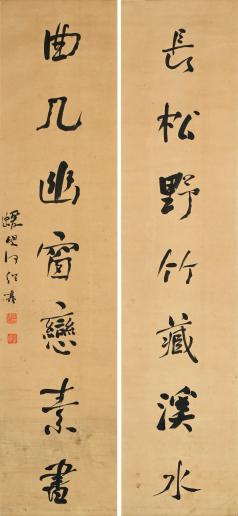 長松野竹藏溪水
曲几幽窗戀素書
蝯叟何紹基